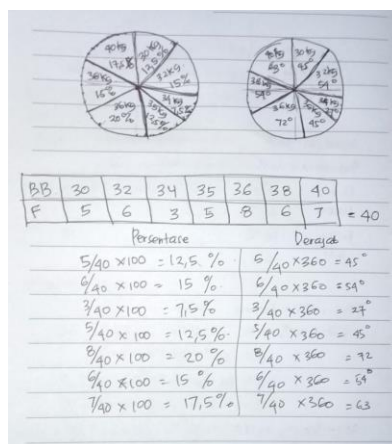 40kg 17,5%
30kg 12,5%
32kg 15%
34kg 7,5%
35kg 12,5%
36kg 20%
38kg 15%
40kg 63°
30kg 45°
32kg 54°
34kg 27°
35kg 45°
36kg 72°
38kg 54°
BB 30 32 34 35 36 38 40
F 5 6 3 5 8 6 7 = 40
Persentase Derajat
5/40 x 100 = 12,5 % 5/40 x 360 = 45°
6/40 x 100 = 15 % 6/40 x 360 = 54°
3/40 x 100 = 7,5 % 3/40 x 360 = 27°
5/40 x 100 = 12,5 % 5/40 x 360 = 45°
8/40 x 100 = 20 % 8/40 x 360 = 72
6/40 x 100 = 15 % 6/40 x 360 = 54°
7/40 x 100 = 17,5% 7/40 x 360 = 63